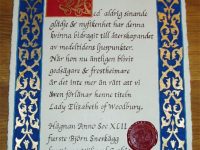 ed aldrig sinande
glädje & nyfikenhet har denna
kvinna bidragit till återskapandet
av medeltidens ljuspunkter.
När hon nu äntligen blivit
godsägare & frostheimare
är det inte mer än rätt att vi
även förlänar henne titeln
Lady Elizabeth of Woodbury,
Hägnan Anno Sec XLIII
furste Björn Snerkägg